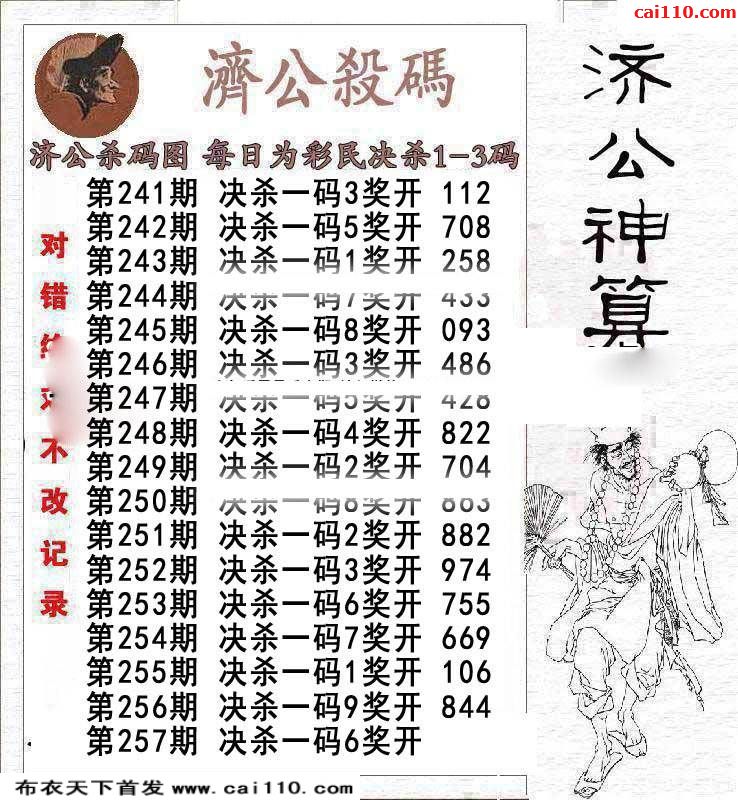 cai110.com
濟公殺碼
济公杀码图 每日为彩民决杀1-3码
第241期 决杀一码3奖开 112
第242期 决杀一码5奖开 708
第243期 决杀一码1奖开 258
第244期 决杀一码7奖开 433
第245期 决杀一码8奖开 093
第246期 决杀一码3奖开 486
第247期 决杀一码5奖开 428
第248期 决杀一码4奖开 822
第249期 决杀一码2奖开 704
第250期 决杀一码8奖开 863
第251期 决杀一码2奖开 882
第252期 决杀一码3奖开 974
第253期 决杀一码6奖开 755
第254期 决杀一码7奖开 669
第255期 决杀一码1奖开 106
第256期 决杀一码9奖开 844
第257期 决杀一码6奖开
对错绝对不改记录
济公神算
布衣天下首发 www.cai110.com